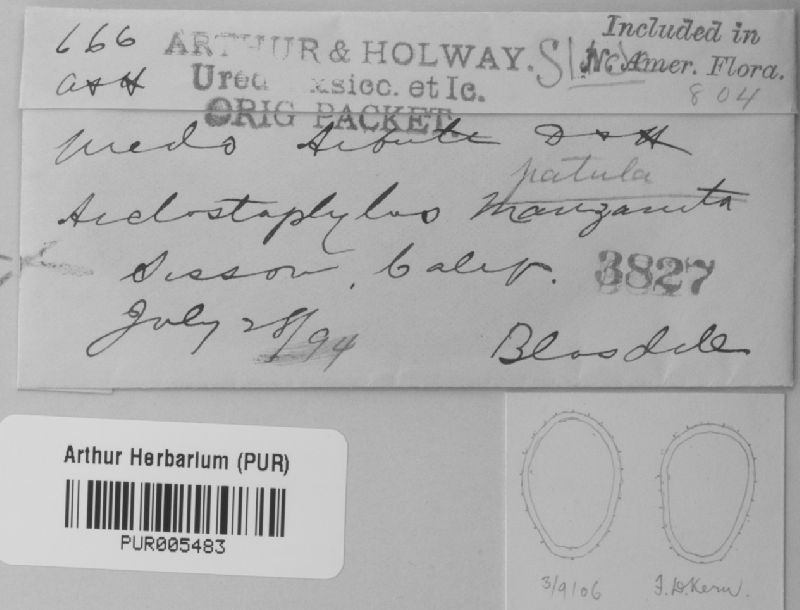 666
a + H
ARTHUR & HOLWAY.
Ured exsicc. et Ic.
ORIG PACKET
Slide
Included in
N. Amer. Flora.
804
Uredo Arbuti D + H
patula
Arctostaphylos Manzanita
Sisson, Calif. 3827
July 28/94 Blasdale
Arthur Herbarium (PUR)
PUR005483
3/9/06 F.D.Kern.